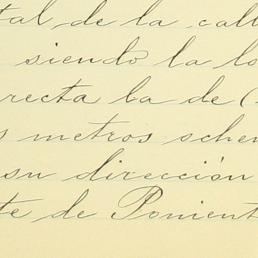 tal de la call
siendo la lo
recta la de (
s metros schen
su dirección
te de Ponient